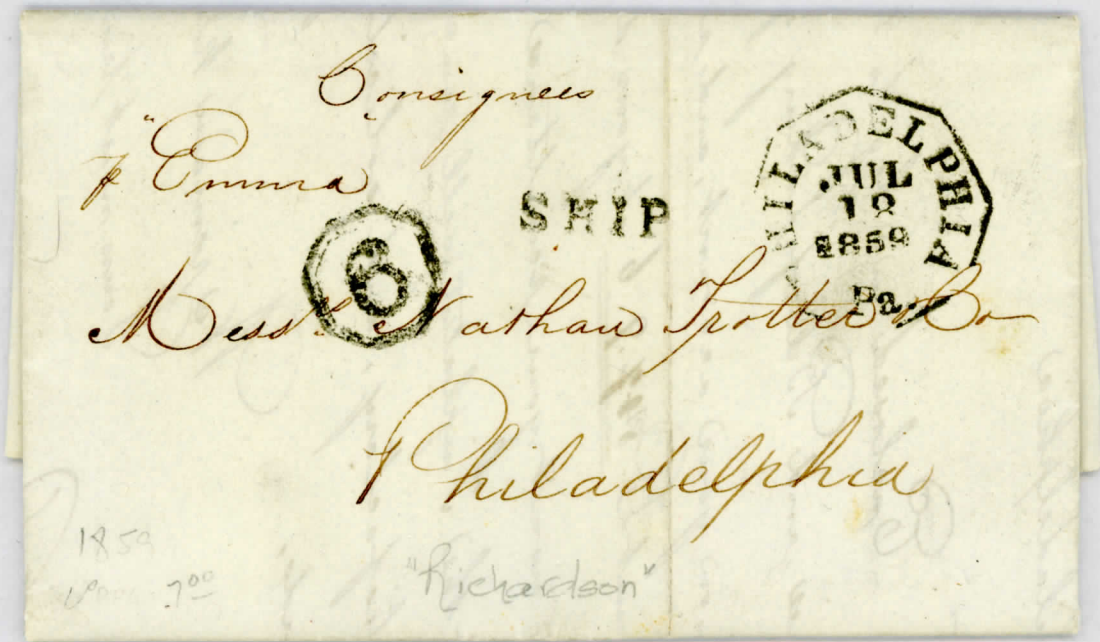 Consignees
p "Emma
SHIP
PHILADELPHIA
JUL
18
1859
Pa
6
Messrs Nathan Trotter & Co
Philadelphia
1859
7 00
"Richardson"